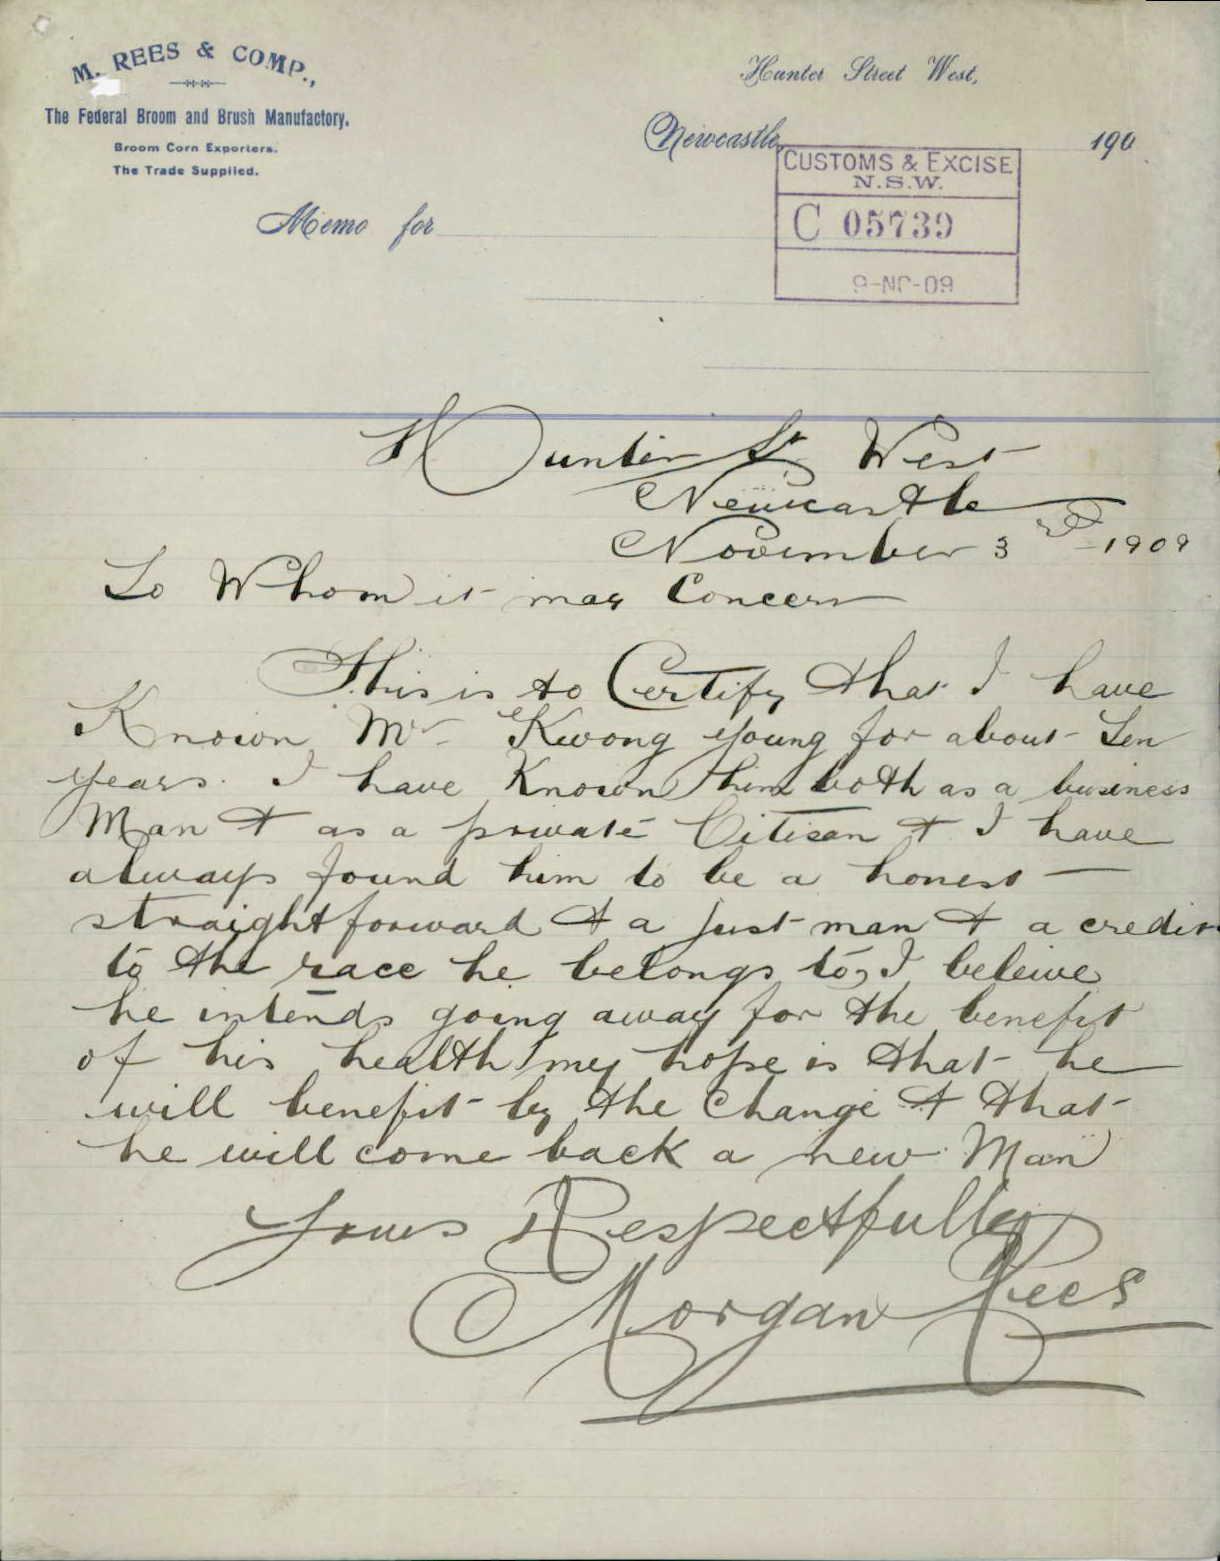 M. REES & COMP.,
The Federal Broom and Brush Manufactory.
Broom Corn Exporters.
The Trade Supplied.
Hunter Street West,
Newcastle, 190
CUSTOMS & EXCISE
N.S.W.
C 05739
9-NO-09
Memo for
Hunter St West
Newcastle
November 3rd-1909
To Whom it may Concern
This is to Certify that I have
Known Mr Kwong young for about Ten
years. I have Known him both as a business
Man & as a private Citisen & I have
always found him to be a honest
straightforward & a just man & a credit
to the race he belongs to, I beleive
he intends going away for the benefit
of his health my hope is that he
will benefit by the change & that
he will come back a new Man
Yours Respectfully
Morgan Rees